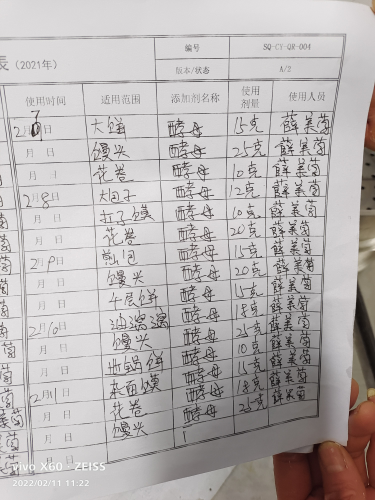 表（2021年） 编号 SQ-CY-QR-004
版本/状态 A/2
使用时间 适用范围 添加剂名称 使用剂量 使用人员
2月7日 大饼 酵母 15克 薛美茵
月 日 馒头 酵母 25克 薛美茵
月 日 花卷 酵母 10克 薛美茵
2月8日 大包子 酵母 12克 薛美茵
月 日 酵母 10克 薛美茵
月 日 花卷 酵母 20克 薛美茵
2月9日 煎包 酵母 15克 薛美茵
月 日 馒头 酵母 20克 薛美茵
月 日 千层饼 酵母 15克 薛美茵
2月10日 油 酵母 18克 薛美茵
月 日 馒头 酵母 25克 薛美茵
月 日 饼 酵母 10克 薛美茵
2月11日 馍 酵母 15克 薛美茵
月 日 花卷 酵母 18克 薛美茵
月 日 馒头 酵母 25克 薛美茵
vivo X60 · ZEISS
2022/02/11 11:22